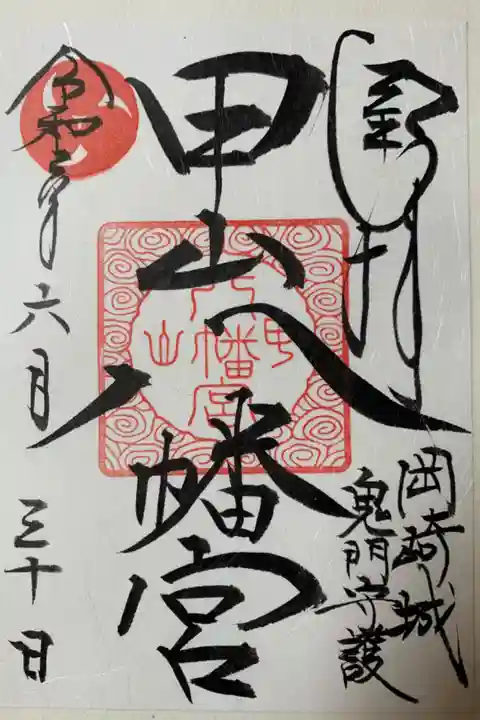 奉拝
岡崎城
鬼門守護
甲山八幡宮
甲山
八幡宮
令和二年六月三十日